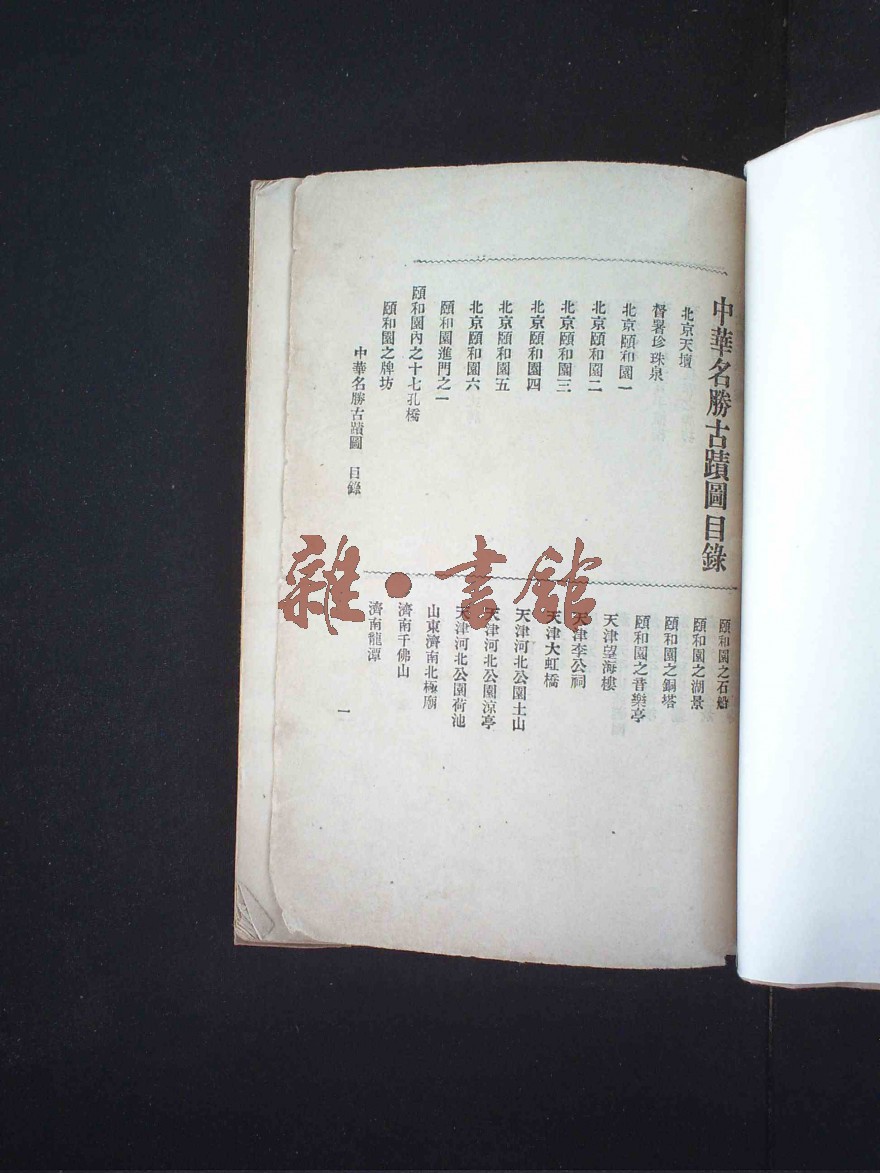 中華名勝古蹟圖目錄
北京天壇
督署珍珠泉
北京頤和園一
北京頤和園二
北京頤和園三
北京頤和園四
北京頤和園五
北京頤和園六
頤和園進門之一
頤和園內之十七孔橋
頤和園之牌坊
頤和園之石船
頤和園之湖景
頤和園之銅塔
頤和園之音樂亭
天津望海樓
天津李公祠
天津大虹橋
天津河北公園土山
天津河北公園涼亭
天津河北公園荷池
山東濟南北極廟
濟南千佛山
濟南龍潭
中華名勝古蹟圖 目錄
一
雜·書館